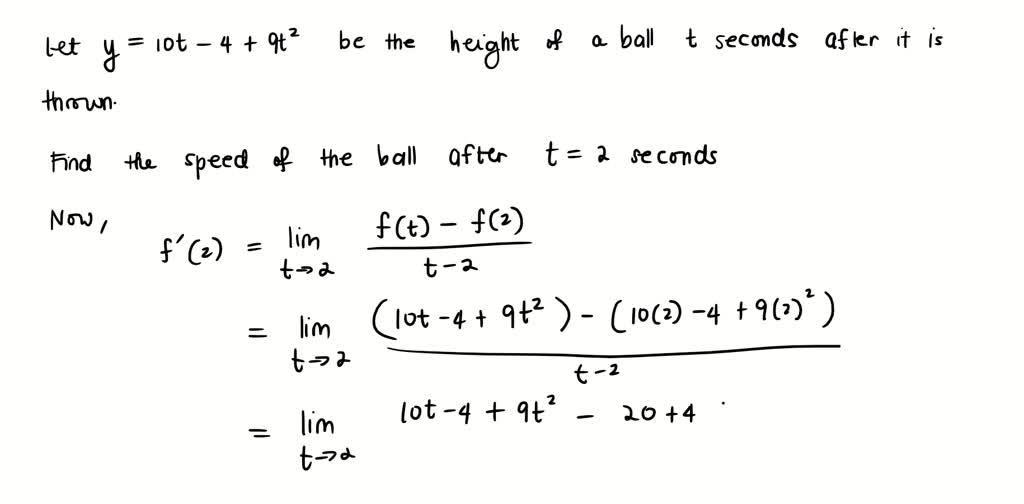 Let y = 10t - 4 + 9t² be the height of a ball t seconds after it is
thrown.
Find the speed of the ball after t = 2 seconds
Now,
f'(2) = lim t→2 (f(t) - f(2)) / (t-2)
= lim t→2 ((10t - 4 + 9t²) - (10(2) - 4 + 9(2)²)) / (t-2)
= lim t→2 10t - 4 + 9t² - 20 + 4